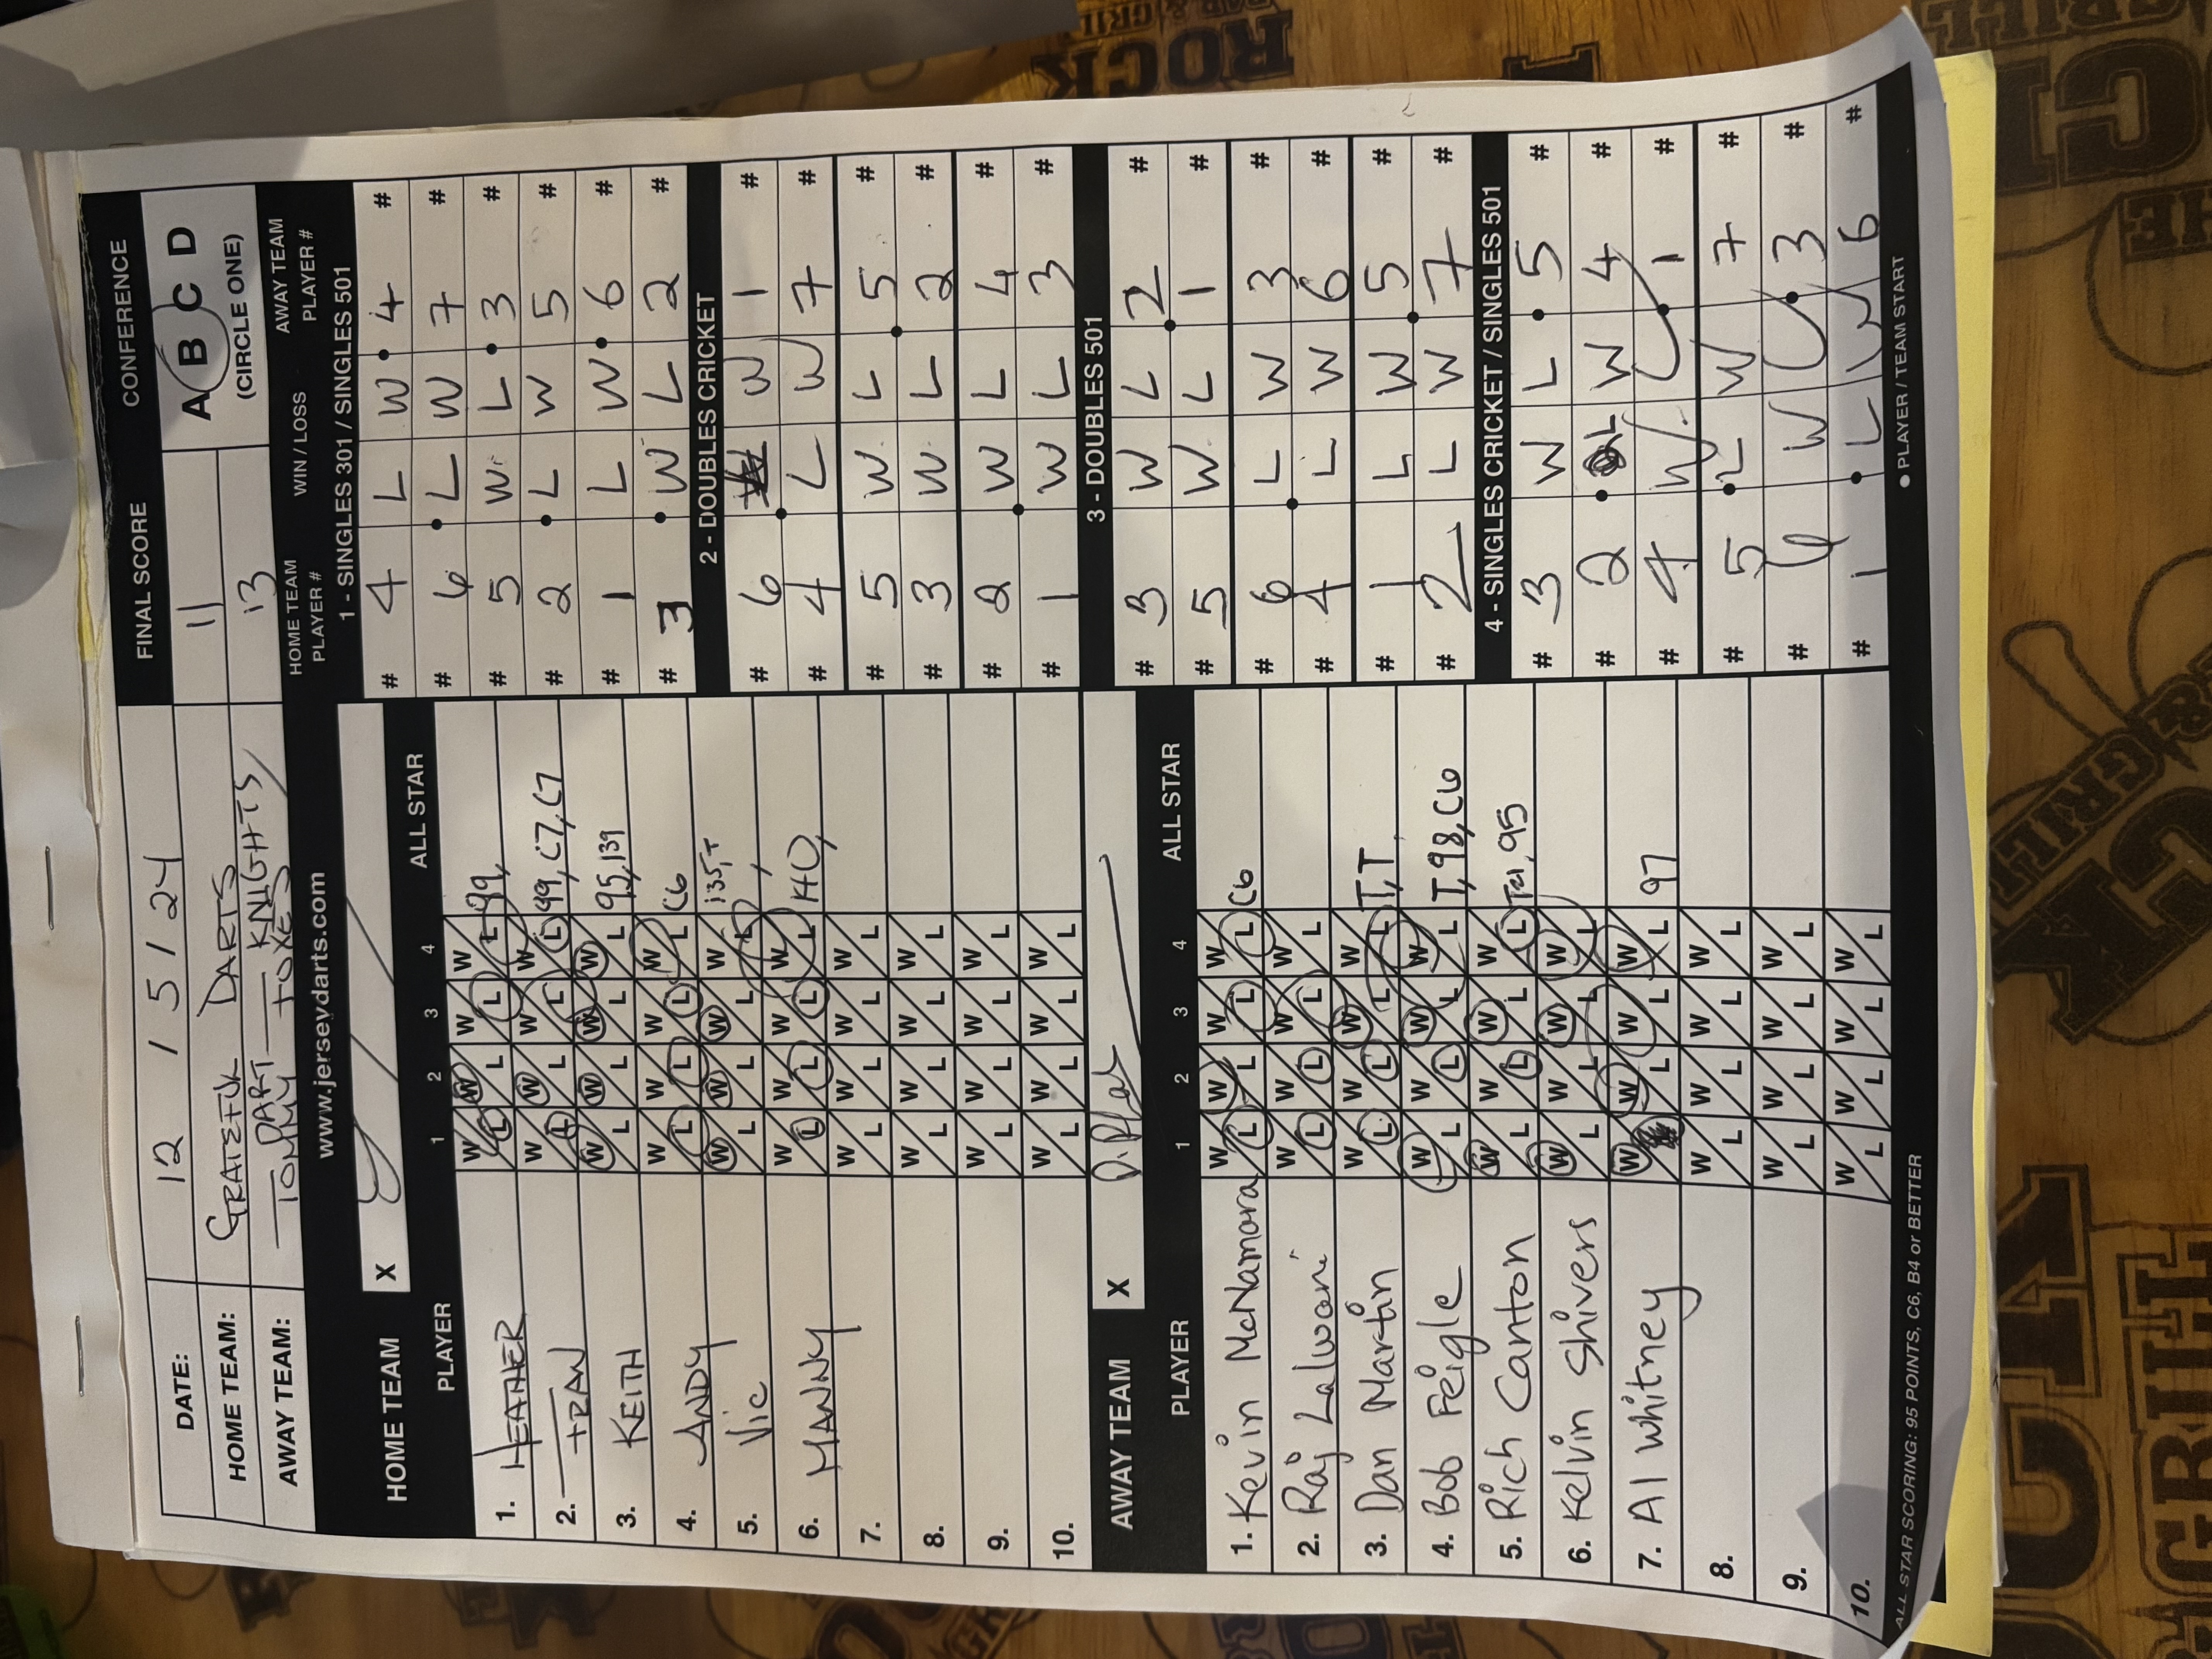 DATE: 12 / 5 / 24
HOME TEAM: GRATEFUL DARTS
AWAY TEAM: DART KNIGHTS
TOMMY FOXES
FINAL SCORE
11
13
CONFERENCE
A B C D
(CIRCLE ONE)
www.jerseydarts.com
HOME TEAM X
PLAYER 1 2 3 4 ALL STAR
1. HEATHER W L W L W L W L 99,
2. FRAN W L W L W L W L 99, C7, C7
3. KEITH W L W L W L W L 95, 139
4. ANDY W L W L W L W L C6
5. VIC W L W L W L W L 135, T
6. MANNY W L W L W L W L 140,
7. W L W L W L W L
8. W L W L W L W L
9. W L W L W L W L
10. W L W L W L W L
AWAY TEAM X
PLAYER 1 2 3 4 ALL STAR
1. Kevin McNamara W L W L W L W L C6
2. Raj Lalwani W L W L W L W L
3. Dan Martin W L W L W L W L T, T
4. Bob Feigle W L W L W L W L T, 98, C6
5. Rich Canton W L W L W L W L 95
6. Kelvin Shivers W L W L W L W L
7. Al Whitney W L W L W L W L 97
8. W L W L W L W L
9. W L W L W L W L
10. W L W L W L W L
ALL STAR SCORING: 95 POINTS, C6, B4 or BETTER
HOME TEAM PLAYER # WIN / LOSS AWAY TEAM PLAYER #
1 - SINGLES 301 / SINGLES 501
# 4 L W 4 #
# 6 L W 7 #
# 5 W L 3 #
# 2 L W 5 #
# 1 L W 6 #
# 3 W L 2 #
2 - DOUBLES CRICKET
# 6 W 1 #
# 4 L W 7 #
# 5 W L 5 #
# 3 W L 2 #
# 2 W L 4 #
# 1 W L 3 #
3 - DOUBLES 501
# 3 W L 2 #
# 5 W L 1 #
# 6 L W 3 #
# 4 L W 6 #
# 1 L W 5 #
# 2 L W 7 #
4 - SINGLES CRICKET / SINGLES 501
# 3 W L 5 #
# 2 L W 4 #
# 4 W L 1 #
# 5 L W 7 #
# 6 W L 3 #
# 1 L W 6 #
● PLAYER / TEAM START
ROCK
BAR & GRILL